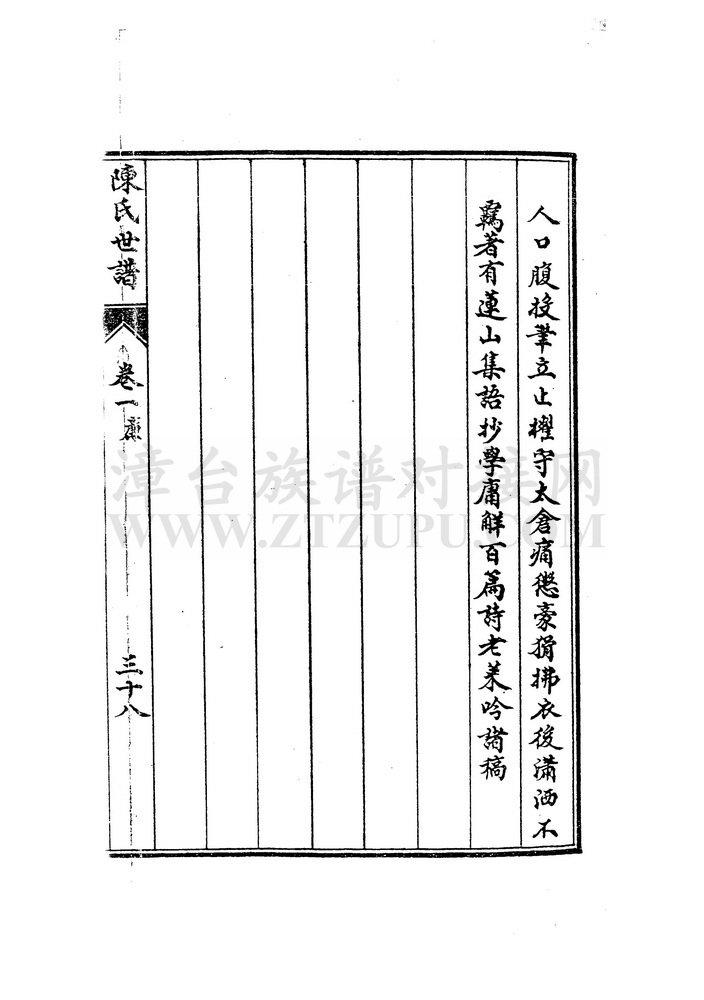 人口腹投筆立止擢守太倉痛懲豪猾拂衣後瀟洒不
羈著有蓮山集語抄學庸解百篇詩老萊吟諸稿
陳氏世譜
卷一
三十八
漳台族谱对接网
WWW.ZTZUPU.COM